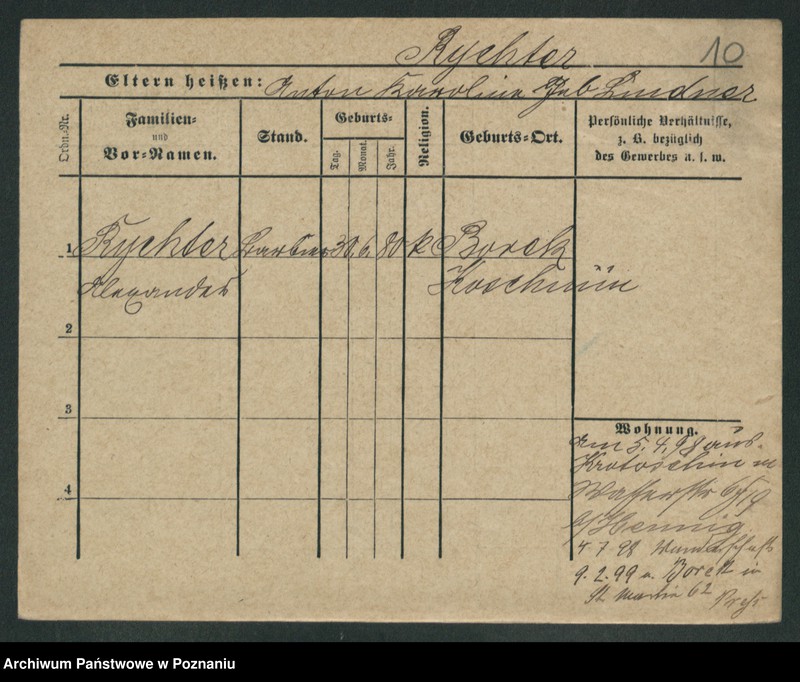 Rychter 10
Eltern heißen: Anton Karoline geb Lindner
Ordn.-Nr.
Familien-
und
Vor-Namen.
Stand.
Geburts-
Tag.
Monat.
Jahr.
Religion.
Geburts-Ort.
Persönliche Verhältnisse,
z. B. bezüglich
des Gewerbes u. s. w.
1 Rychter Barbier 30. 6. 80 k Borek
Alexander Koschmin
2
3
4
Wohnung.
Am 5. 4. 98 aus
Krotoschin
Wasserstr
b/ Hennig
4 7 98 Wanderschaft
9. 2. 99 v. Borek in
St Martin 62